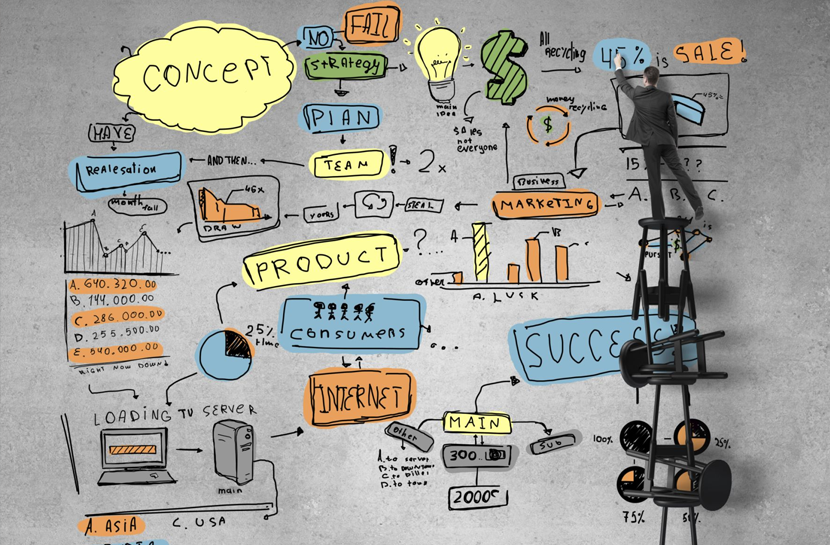 NO
FAIL
CONCEPT
STRATEGY
main
idea
All
Recycling
45%
is
SALE!
45%
PLAN
money
recycling
$
SALES
not
everyone
HAVE
Realesation
AND THEN...
TEAM
!
2x
Business
MARKETING
15.
? ?
A. B. C.
month
fall
46x
DRAW
yours
A
B
?...
PRODUCT
A. LUSK
is
$
A. 640.320.00
B. 144.000.00
C. 286.000.00
D. 255.500.00
E. 540.000.00
RIGHT NOW DOWN!
25%
time
CONSUMERS
SUCCESS
INTERNET
LOADING TV SERVER
main
MAIN
Other
SUB
300.
A. to server
D. to
100%
25%
75%
A. ASIA
C. USA